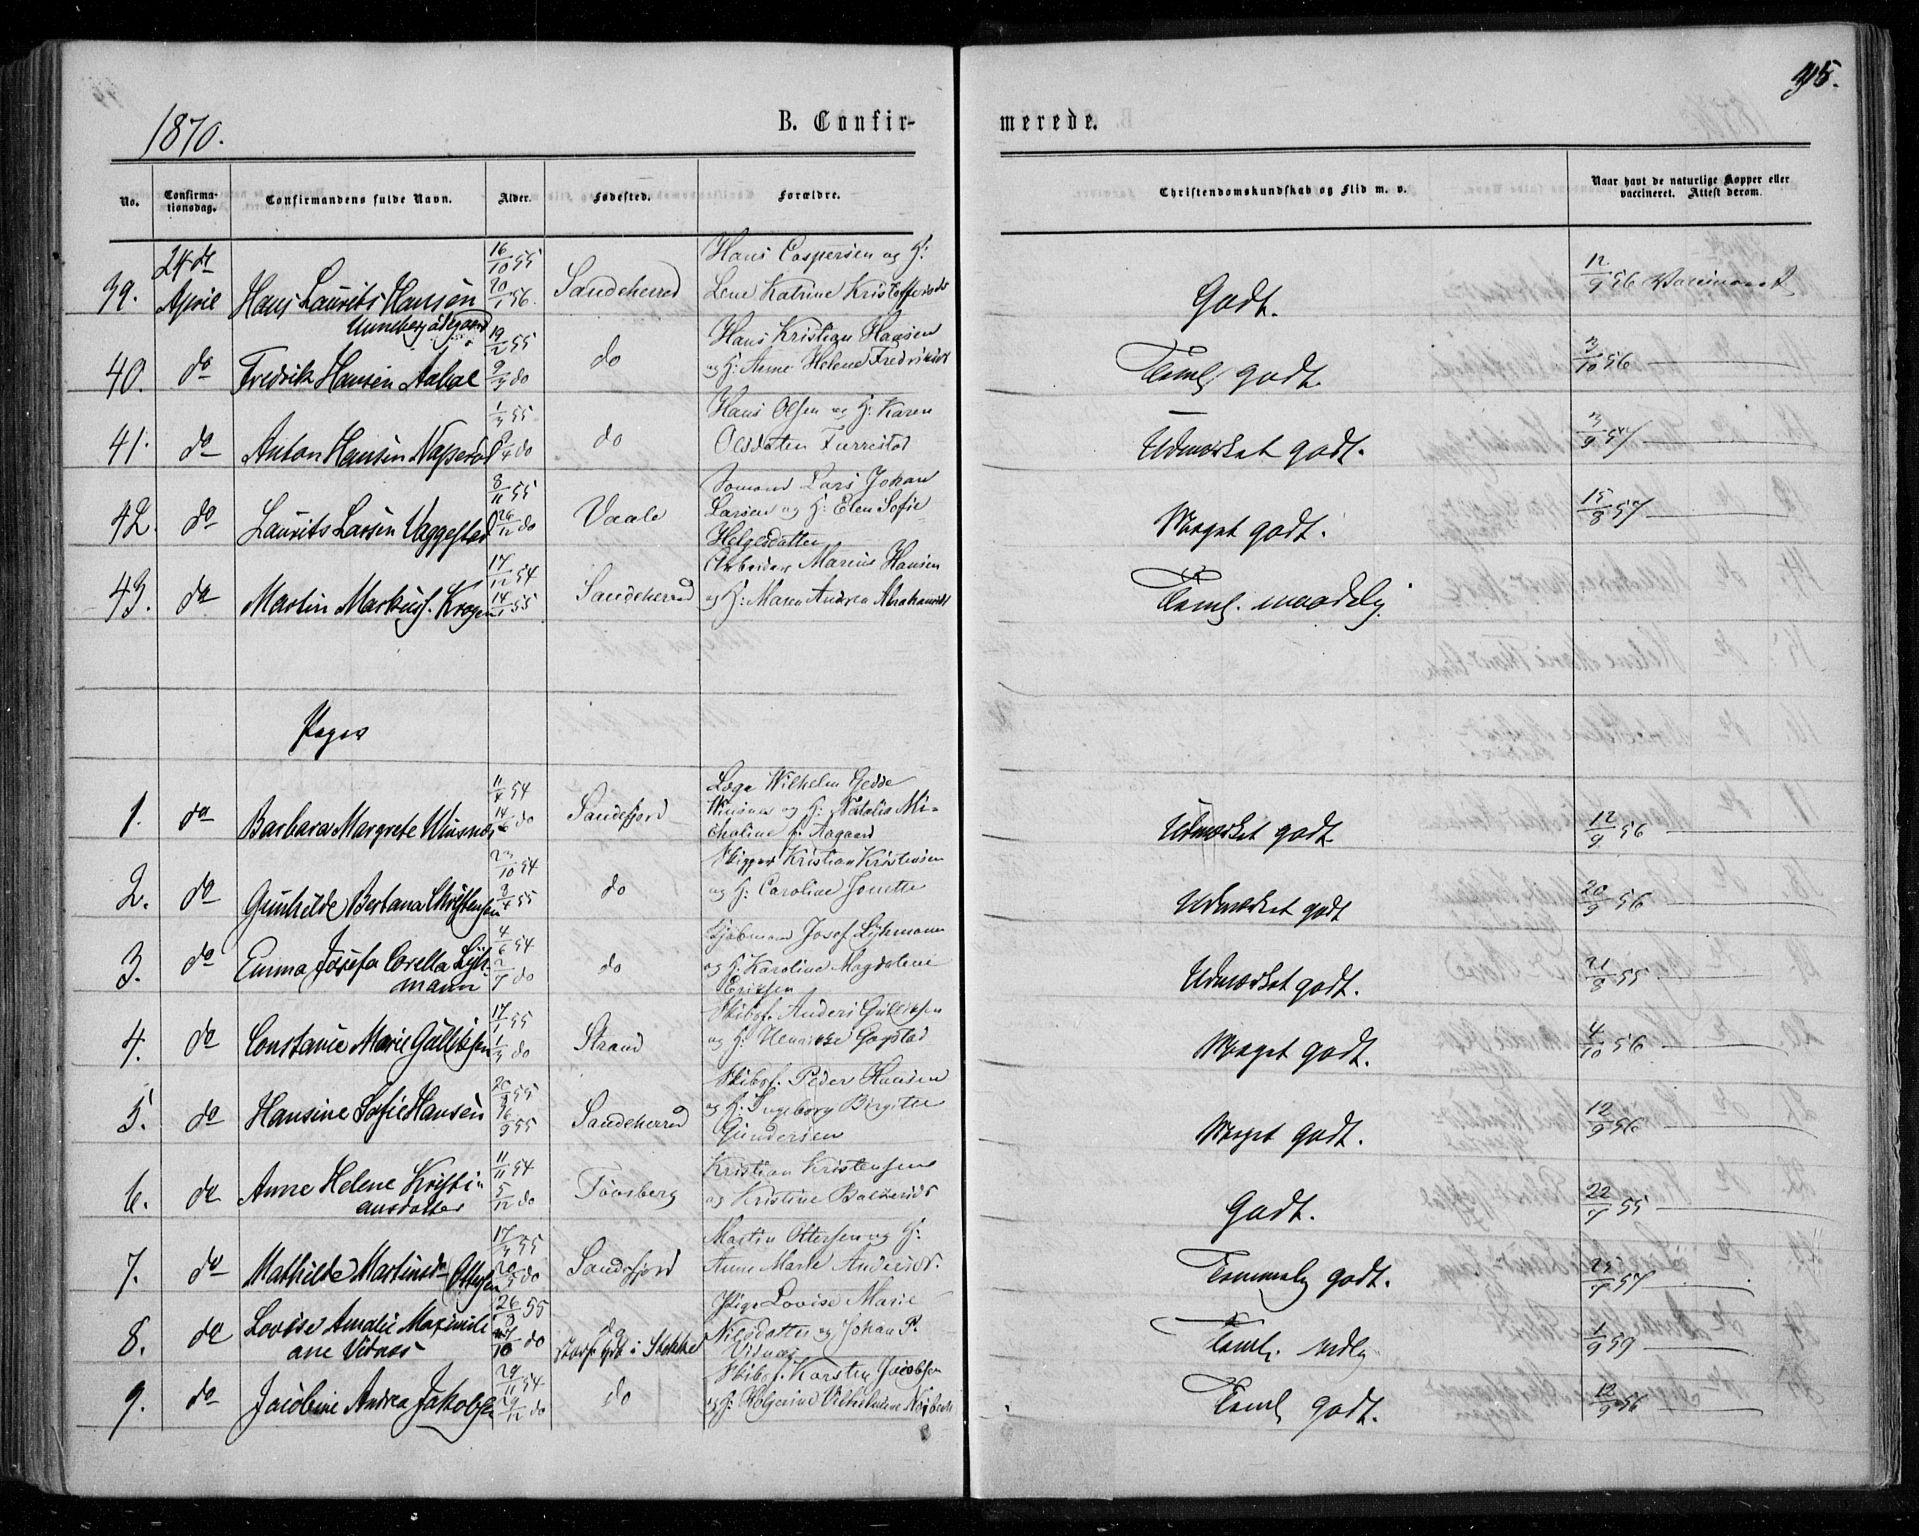 1870.
B. Confir-
merede.
95.
No.
Confirma-
tionsdag.
Confirmandens fulde Navn.
Alder.
Fødested.
Forældre.
Christendomskundskab og Flid m. v.
Naar havt de naturlige Kopper eller
vaccineret. Attest derom.
39. 24de April Hans Laurits Hansen 16/10 55 20/1 56. Sandeherred
Hans Caspersen og H:
Lene Katrine Kristoffersdr
Godt. 12/9 56
Unneberg ødegaard
40. do Fredrik Hansen 19/2 55 9/4 do do
Hans Kristian Hansen
og H: Anne Helene Fredriksdr
Teml. godt. 3/10 56
41. do Anton Hansen 1/3 55 do
Hans Olsen og H: Karen
Olsdatter Furrestad
Udmærket godt. 3/9 57
42. do Laurits Larsen Vaggestad 8/11 55 26/12 do Vaale
Lars Johan
Larsen og H: Elen Sofie
Helgesdatter
Meget godt. 15/8 57
43. do Martin Markus. 17/12 54 14/1 55 Sandeherred
Arbeider Marius Hansen
og H: Maren Andrea Abrahamsdr
Teml. maadelig
Piger
1. do Barbara Margrete Winsnes 11/4 54 14/6 do Sandefjord
Læge Wilhelm Gedde
Winsnes og H: Natalia Mi-
choline f. Aagaard
Udmærket godt. 12/9 56
2. do Gunhilde Bertana Christensen 23/10 54 3/4 55 do
Skipper Kristian Kristensen
og H: Caroline Jonette
Udmærket godt 20/9 56
3. do Emma Josefa Corella Lyh-
mann 4/6 54 do
Sjømand Josef Lyhmann
og H: Karoline Magdalene
Eriksen
Udmærket godt. 21/9 55
4. do Constance Marie Gulliksen 17/1 55 1/4 do Strand
Skibsf. Anders Gulliksen
og H: Henrikke Gogstad
Meget godt. 4/10 56
5. do Hansine Sofie Hansen 55 Sandeherred
Skibsf. Peder Hansen
og H: Ingeborg Birgitte
Gundersen
Meget godt. 12/9 56
6. do Anne Helene Kristi-
ansdatter 11/11 54 5/12 do Tønsberg
Kristian Kristensen
og Kristine
Godt. 22/7 55
7. do Mathilde Martinsd. (Ottersen 17/4 55 do Sandefjord
Martin Ottersen og H:
Anne Marte Andersdr.
Temmelig godt. 57
8. do Lovise Amalie Maximili
ane Vidnes 26/8 55 10 do do
i Stokke
Pige Lovise Marie
Nilsdatter og Johan P.
Vidnes
Teml. mdlg 1/9 59
9. do Jacobine Andrea Jakobsen 29/11 54 do do
Skibsf. Karsten Jacobsen
og H:
Teml godt. 12/9 56